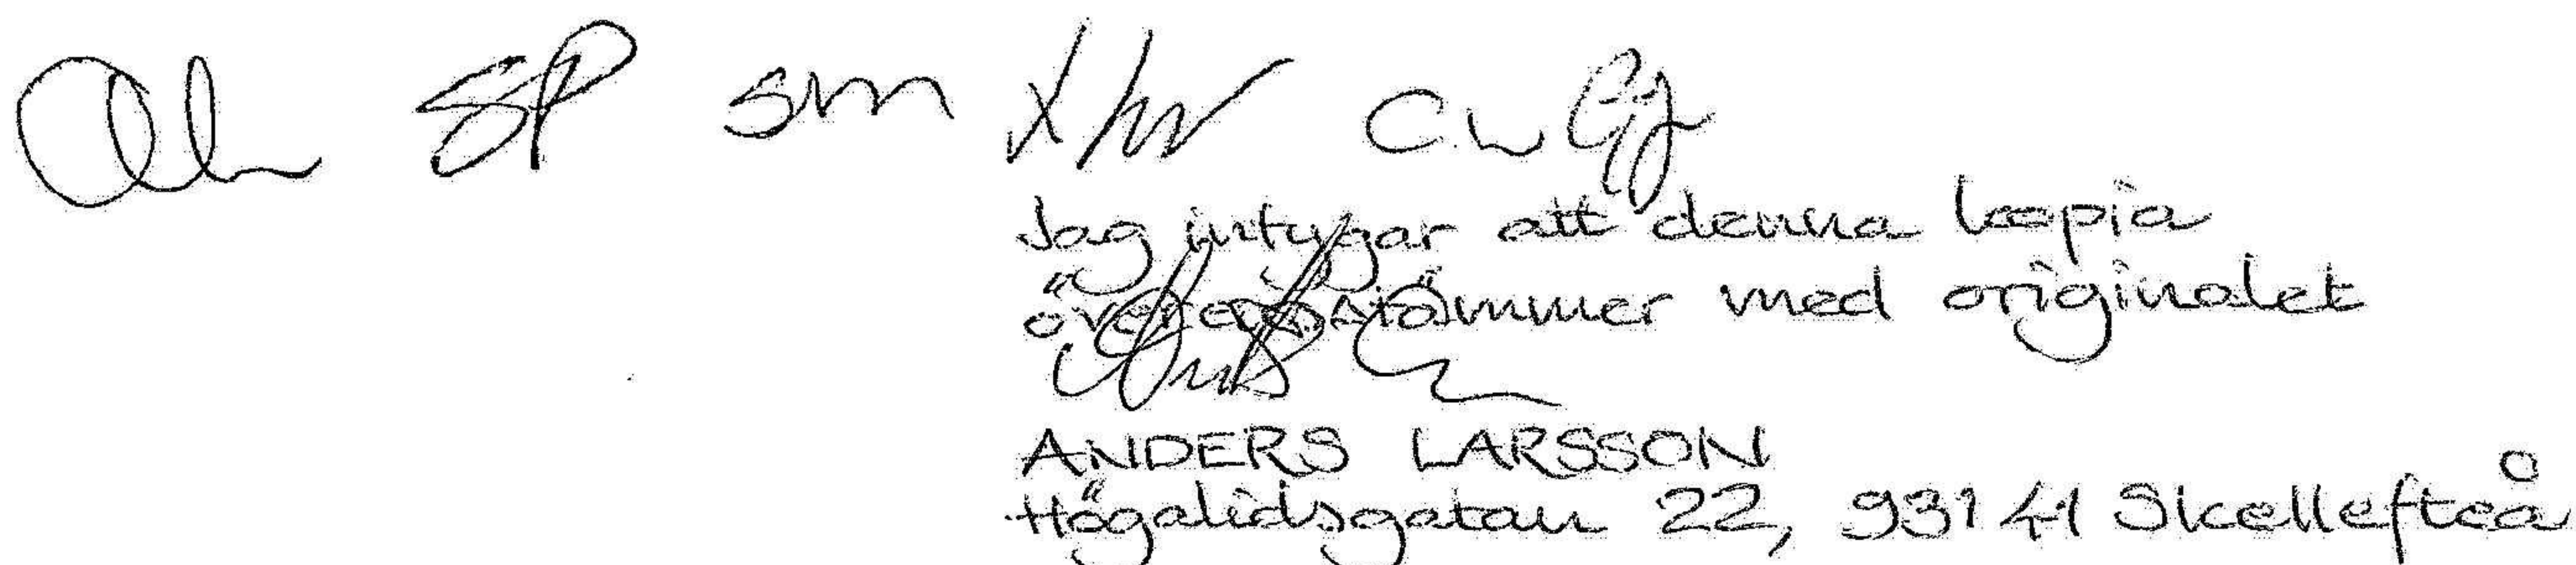 SP sm C.W
Jag intygar att denna kopia
överensstämmer med originalet
ANDERS LARSSON
Högalidsgatan 22, 931 41 Skellefteå